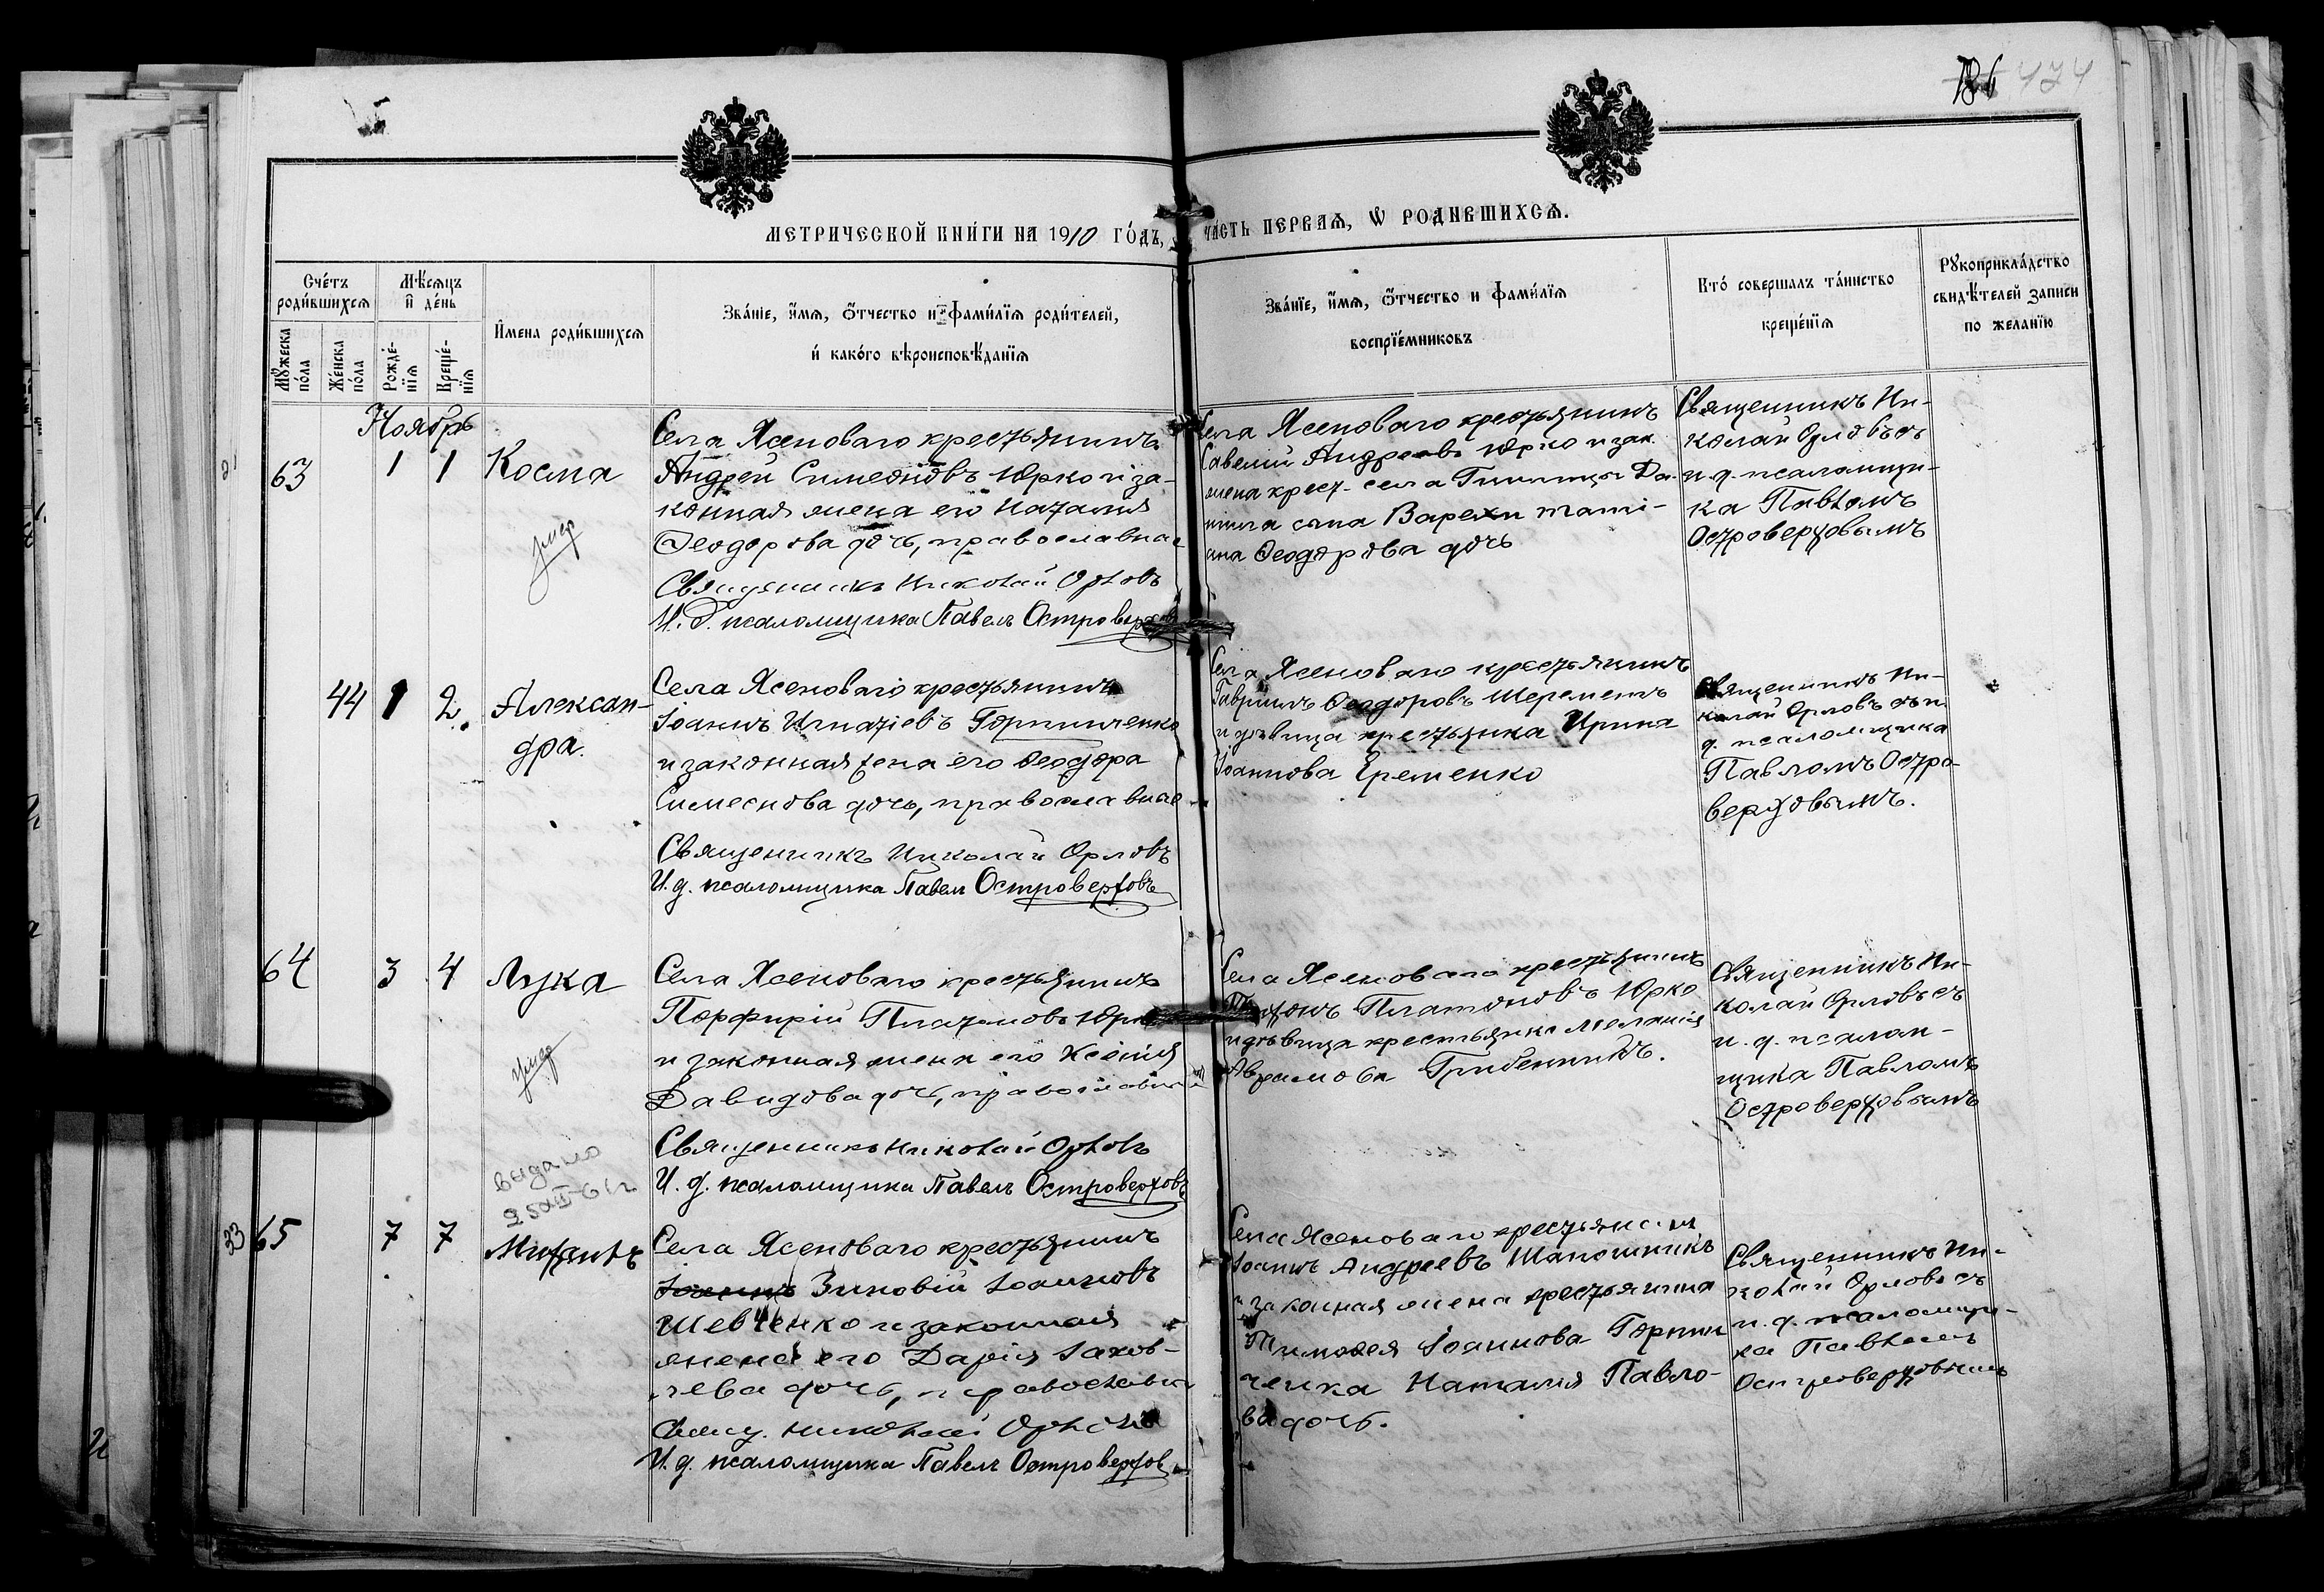 186 474
МЕТРИЧЕСКОЙ КНИ́ГИ НА 1910 ГО́ДЪ, ЧА́СТЬ ПЕРВАѦ, Ѡ РОДИВШИХСѦ.
Сче́тъ роди́вшихсѧ
Мѣ́сѧцъ и҆ де́нь
И҆мена роди́вшихсѧ
Зва́нїе, и҆́мѧ, ѻ҆́тчество и҆ фами́лїѧ роди́телей,
и҆ како́го вѣроисповѣ́данїѧ
Зва́нїе, и҆́мѧ, ѻ҆́тчество и фами́лїѧ
воспрїе́мниковъ
Кто́ совершалъ та́инство
креще́нїѧ
Рꙋкоприкла́дство
свидѣ́телей записи
по желанїю
Мꙋжеска по́ла
Же́нска по́ла
Рожде́нїѧ
Креще́нїѧ
Ноябрь
63 1 1 Косма
умер
Села Ясеноваго крестьянинъ
Андрей Симеоновъ Юрко и за-
конная жена его Наталия
Ѳеодорова дочь, православные
Священникъ Николай Орловъ
И. д. псаломщика Павелъ Островерховъ
Села Ясеноваго крестьянинъ
Савелий Андреевъ Юрко и зак.
жена крест. села
Ѳеодорова дочь
Священникъ Ни-
колай Орловъ съ
и. д. псаломщи-
ка Павломъ
Островерховымъ
44 1 2. Алексан-
дра.
Села Ясеноваго крестьянинъ
Іоаннъ Игнатіевъ Горпинченко
и законная жена его Ѳеодора
Симеонова дочь, православные
Священникъ Николай Орловъ
И. д. псаломщика Павелъ Островерховъ
Села Ясеноваго крестьянинъ
Гавріилъ Ѳеодоровъ Шереметъ
и дѣвица крестьянка Ирина
Іоаннова Еременко
Священникъ Ни-
колай Орловъ съ и.
д. псаломщика
Павломъ Остро-
верховымъ.
64 3 4 Лука
умер
Села Ясеноваго крестьянинъ
Порфирій Платоновъ Юрко
и законная жена его Ксенія
Давидова дочь, православные
Священникъ Николай Орловъ
И. д. псаломщика Павелъ Островерховъ
Села Ясеноваго крестьянинъ
Платоновъ Юрко
и дѣвица крестьянка Меланія
Аврамова
Священникъ Ни-
колай Орловъ съ
и. д. псалом-
щика Павломъ
Островерховымъ
выдано
33 65 7 7 Михаилъ
Села Ясеноваго крестьянинъ
Зиновій Іоанновъ
Шевченко и законная
жена его Дарія Іаков-
лева дочь, православные
Свящ. Николай Орловъ
И. д. псаломщика Павелъ Островерхов
Села Ясеноваго крестьянинъ
Іоаннъ Андреевъ Шапошникъ
и законная жена крестьянина
Тимоѳея Іоаннова Горпин
ченка Наталія Павло-
ва дочь.
Священникъ Ни-
колай Орловъ съ
и. д. псаломщи-
ка Павломъ
Островерховымъ